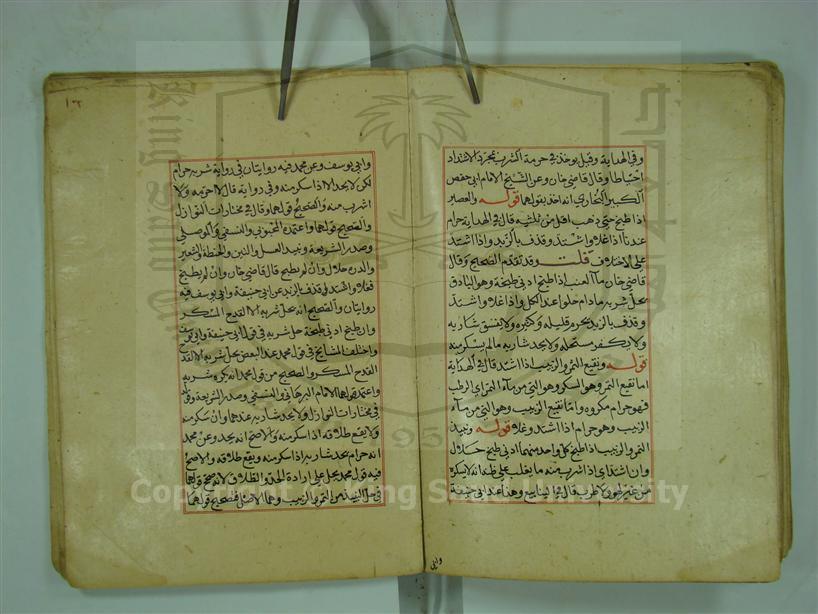 وفي الهداية وقيل يوخذ في حرمة الشرب بمجرد الاشتداد
احتياطا وقال قاضي خان وعن الشيخ الامام ابي حفص
الكبير البخاري انه اخذ بقولهما قوله والعصير
اذا طبخ حتى ذهب اقل من ثلثيه قال في الهداية حرام
عندنا اذا غلا واشتد وقذف بالزبد واذا اشتد
على الاختلاف قلت وقد تقدم الصحيح وقال
قاضي خان ماء العنب اذا طبخ ادنى طبخة وهو الباذق
يحل شربه مادام حلوا عند الكل واذا غلا واشتد
وقذف بالزبد يحرم قليله وكثيره ولا يفسق شاربه
ولا يكفر مستحله ولا يحد شاربه ما لم يسكر منه
قوله ونقيع التمر والزبيب اذا اشتد قال في الهداية
اما نقيع التمر وهو السكر وهو الني من ماء التمر اي الرطب
فهو حرام مكروه واما نقيع الزبيب وهو الني من ماء
الزبيب وهو حرام اذا اشتد وغلا قوله ونبيذ
التمر والزبيب اذا طبخ كل واحد منهما ادنى طبخ حلال
وان اشتد اي اذا شرب منه ما يغلب على ظنه انه لا يسكره
من غير لهو ولا طرب قال في الينابيع وهذا عند ابي حنيفة
وابي
١٠٢
وابي يوسف وعن محمد فيه روايتان في رواية شربه حرام
لكن لا يحد الا اذا سكر منه وفي رواية قال لا احرمه ولا
اشرب منه والصحيح قولهما وقال في مختارات النوازل
والصحيح قولهما واعتمده المحبوبي والنسفي والموصلي
وصدر الشريعة ونبيذ العسل والتين والحنطة والشعير
والذرة حلال وان لم يطبخ قال قاضي خان وان لم يطبخ
فغلا واشتد وقذف بالزبد عن ابي حنيفة وابي يوسف فيه
روايتان والصحيح انه يحل شربه الا القدح المسكر
وان طبخ ادنى طبخة حل شربه في قول ابي حنيفة وابي يوسف
واختلف المشايخ في قول محمد عند البعض يحل شربه الا القدح
القدح المسكر والصحيح من قول محمد انه يكره شربه
واعتمد قولهما الامام البرهاني والنسفي وصدر الشريعة وقال
في مختارات النوازل ولا يحد شاربه عندهما وان سكر منه
ولا يقع طلاقه اذا سكر منه والاصح انه يحد وعن محمد
انه حرام يحد شاربه اذا سكر منه ويقع طلاقه والاصح
فيه قول محمد يحل على ارادة الحد والطلاق لانه صحح قولهما
في حل النبيذ من التمر والزبيب وهما الاصل فتصحيح قولهما
Copyright © King Saud University